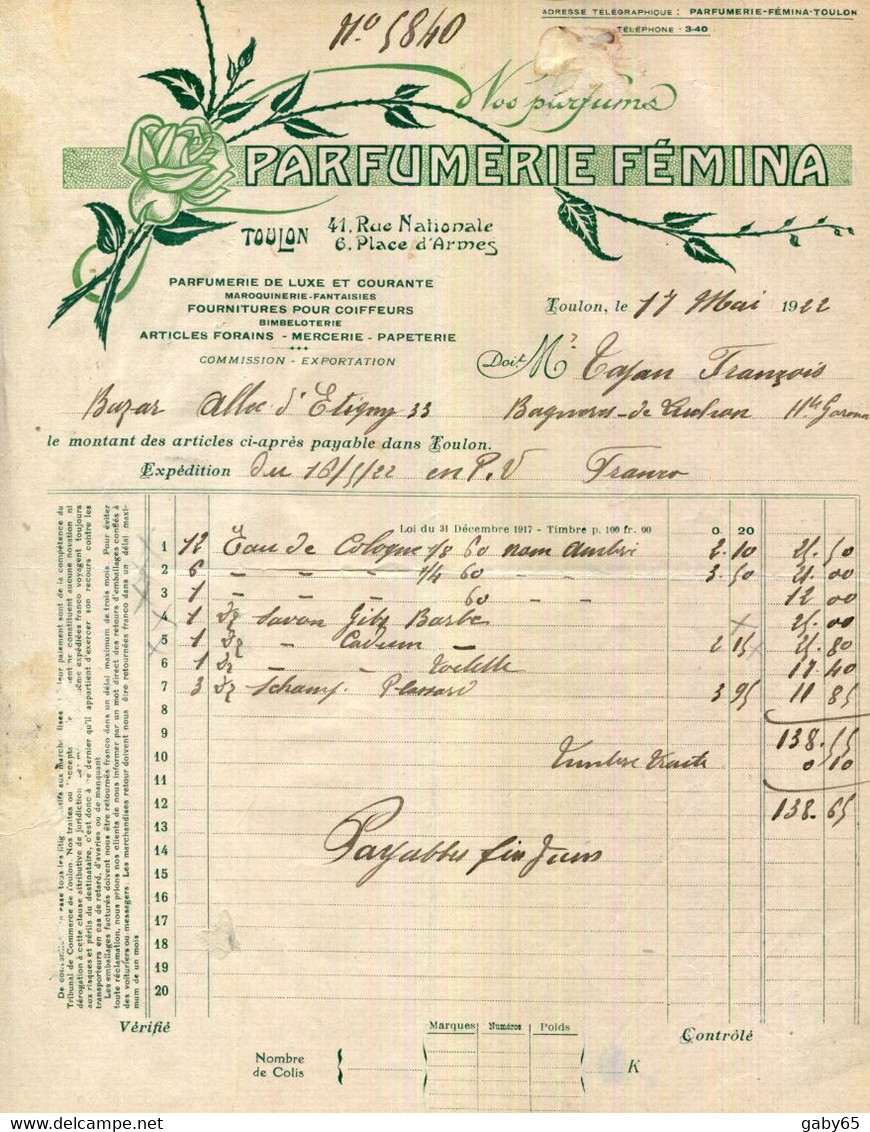 ADRESSE TÉLÉGRAPHIQUE : PARFUMERIE-FÉMINA-TOULON
TÉLÉPHONE : 3-40
No 5840
Nos parfums
PARFUMERIE FÉMINA
TOULON 41, Rue Nationale
6, Place d'Armes
PARFUMERIE DE LUXE ET COURANTE
MAROQUINERIE-FANTAISIES
FOURNITURES POUR COIFFEURS
BIMBELOTERIE
ARTICLES FORAINS - MERCERIE - PAPETERIE
COMMISSION - EXPORTATION
Toulon, le 17 Mai 1922
Doit Mr François
Bazar Allée d'Etigny 33 Bagneres-de Luchon Hte Garonne
le montant des articles ci-après payable dans Toulon.
Expédition du 16/5/22 en P.V Franco
Loi du 31 Décembre 1917 - Timbre p. 100 fr. 00 0. 20
1 12 Eau de Cologne 1/8 60 nom Ambré 2.10 25.50
2 6 - - - 1/4 60 - - 3.50 21.00
3 1 - - - 60 - - 12 00
4 1 Dz Savon Gibs Barbe 25.00
5 1 Dz - Cadum - 2 15 25.80
6 1 Dz - - Toilette 17.40
7 3 Dz Schamp. 3 95 11 85
8
9 138.55
10 Timbre traite 0 10
11
12 138.65
13
14 Payables fin Juin
15
16
17
18
19
20
Tribunal de Commerce de Toulon. Nos traites ou
dérogation à cette clause attributive de juridiction
aux risques et périls du destinataire, c'est donc à ce dernier qu'il appartient d'exercer son recours contre les
transporteurs en cas de retard, d'avaries ou de manquant.
Les emballages facturés doivent nous être retournés franco dans un délai maximum de trois mois. Pour éviter
toute réclamation, nous prions nos clients de nous informer par un mot direct des retours d'emballages confiés à
des voituriers ou messagers. Les marchandises retour doivent nous être retournées franco dans un délai maxi-
mum de un mois
Vérifié
Marques Numéros Poids
Contrôlé
Nombre
de Colis
K
gaby65